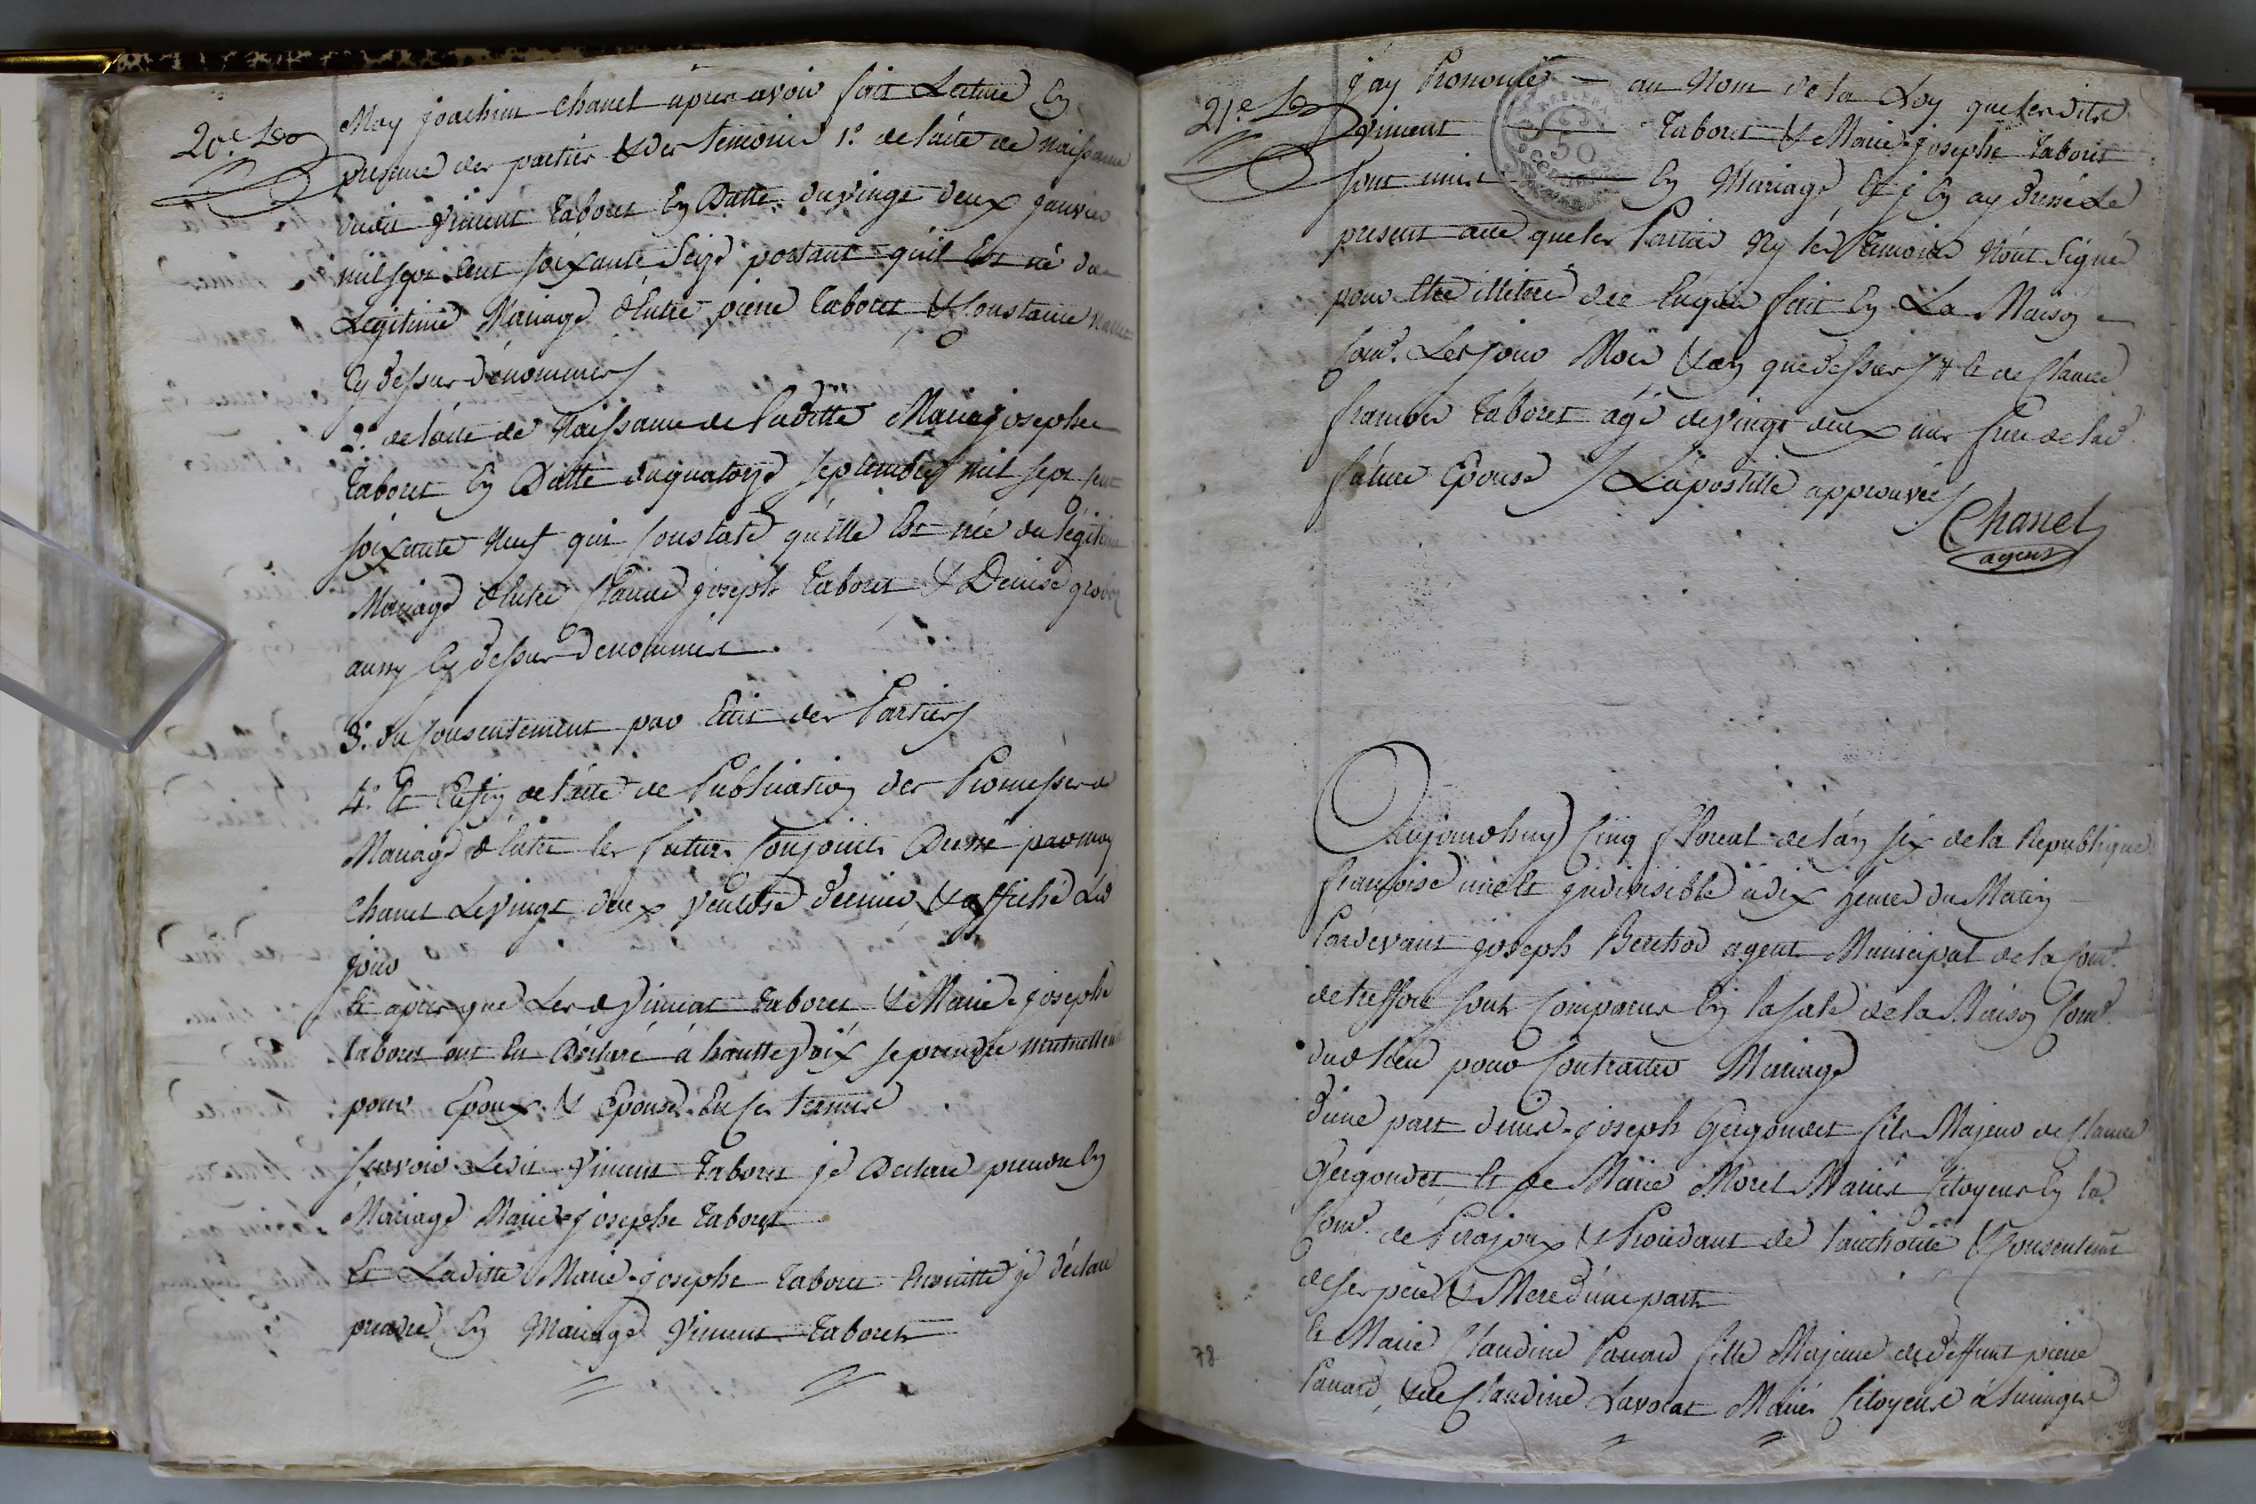 20e. fo
Moy joachim Chanel après avoir fait Lecture En
presence des parties & des temoins 1.° de l'acte de naissance
dudit Vincent taboret En Datte du vingt deux janvier
mil sept cent soixante seize portant qu'il Est né du
Legitime Mariage d'Entre pierre taboret & Constance
Cy dessus dénommés
2.° de l'acte de Naissance de laditte Marie josephe
taboret En Datte du quatorze septembre mil sept cent
soixante neuf qui Constate qu'elle Est née du légitime
Mariage d'Entre Claude joseph taboret & Denise
aussy Cy dessus denommés
3.° du Consentement par Ecrit des Parties
4.° Et Enfin de l'acte de Publication des Promesses de
Mariage d'Entre les futurs Conjoints Dressé par moy
Chanel Le vingt deux ventose dernier & affiché Led
jour
Et après que Les d Vincent taboret & Marie josephe
taboret ont Eu Déclaré à hautte voix se prendre mutuellemt
pour Epoux & Epouse En ces termes
sçavoir Ledit Vincent taboret je Déclare prendre En
Mariage Marie josephe taboret
Et Laditte Marie josephe taboret Ensuitte je déclare
prendre En Mariage Vincent taboret
21.e fo
j'ay Prononcé au Nom de la Loy que lesdits
Vincent taboret & Marie josephe taboret
sont unis En Mariage, Et j'En ay dressé Le
present acte que les Parties Ny les temoins N'ont signé
pour Etre illitéré de ce Enquis fait En La Maison
Com.e Les jour Mois & an que dessus # et de Claude
francois taboret agé de vingt deux ans frere de lad.
future Epouse / L'apostille approuvée
Chanel
agent
50
Aujourdhuy Cinq floreal de l'an six de la Republique
françoise une Et indivisible à dix heures du Matin
Pardevant joseph Berthod agent Municipal de la Com.e
de treffort sont Comparus En la sale de la Maison Com.e
dud lieu pour Contracter Mariage
d'une part denis joseph Gergondet fils Majeur de Claude
Gergondet Et de Marie Morel Mariés Citoyens En la
Com.e de Pirajoux & Procedant de l'authorité & Consentemt
de ses père & Mere d'une part
Et Marie Claudine Panard fille Majeure de deffunt pierre
Panard, & de Claudine Lavocat Mariés Citoyens à
78